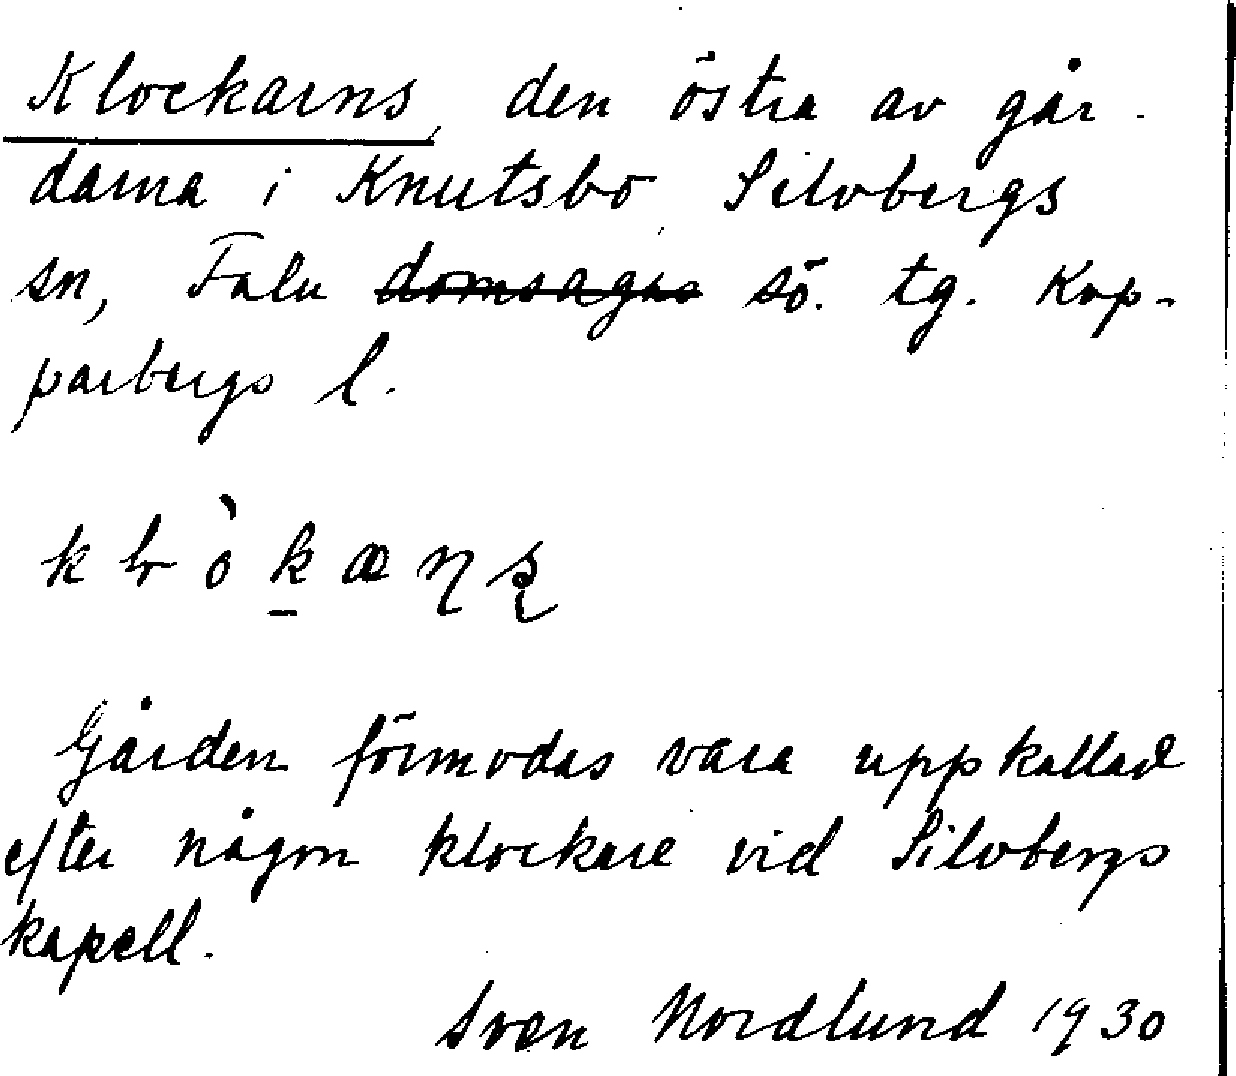 Klockarns, den östra av går-
darna i Knutsbo Silvbergs
sn, Falu domsagas sö. tg. Kop-
parbergs l.
Gården förmodas vara uppkallad
efter någon klockare vid Silvbergs
kapell.
Sven Nordlund 1930